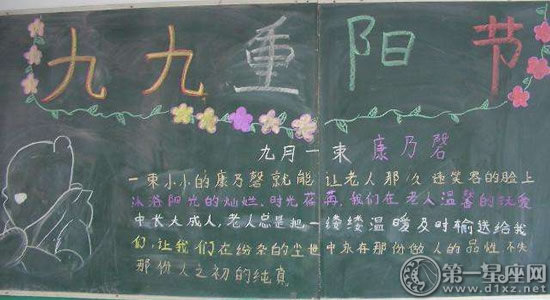 九九重阳节
九月一束 康乃磬
一束小小的康乃磬就能让老人那久违笑容的脸上
洒落阳光的灿烂。时光荏苒,我们在老人温馨的抚爱
中长大成人,老人总是把一缕缕温暖及时输送给我
们,让我们在纷杂的尘世中永存那份做人的品性不失
那份人之初的纯真
第一星座网
www.d1xz.net